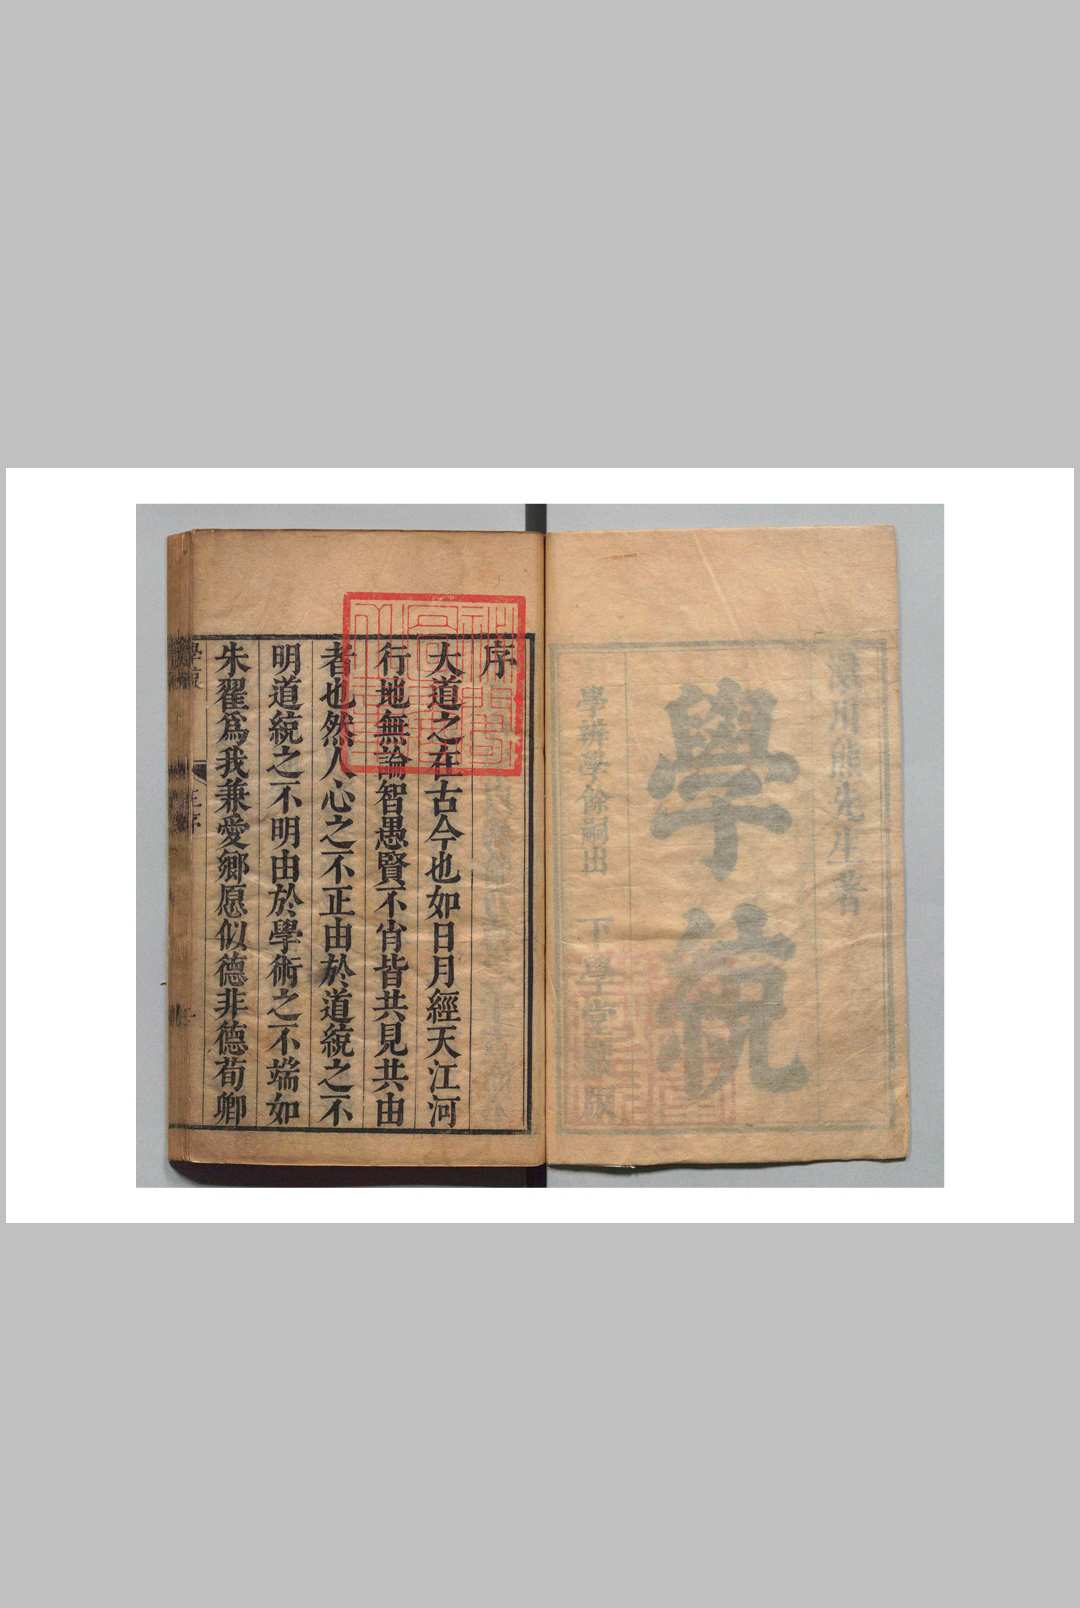 熊先生著
學統
學辨學餘嗣出 下學堂藏版
序
大道之在古今也如日月經天江河
行地無論智愚賢不肖皆共見共由
者也然人心之不正由於道統之不
明道統之不明由於學術之不端如
朱翟為我兼愛鄉愿似德非德荀卿